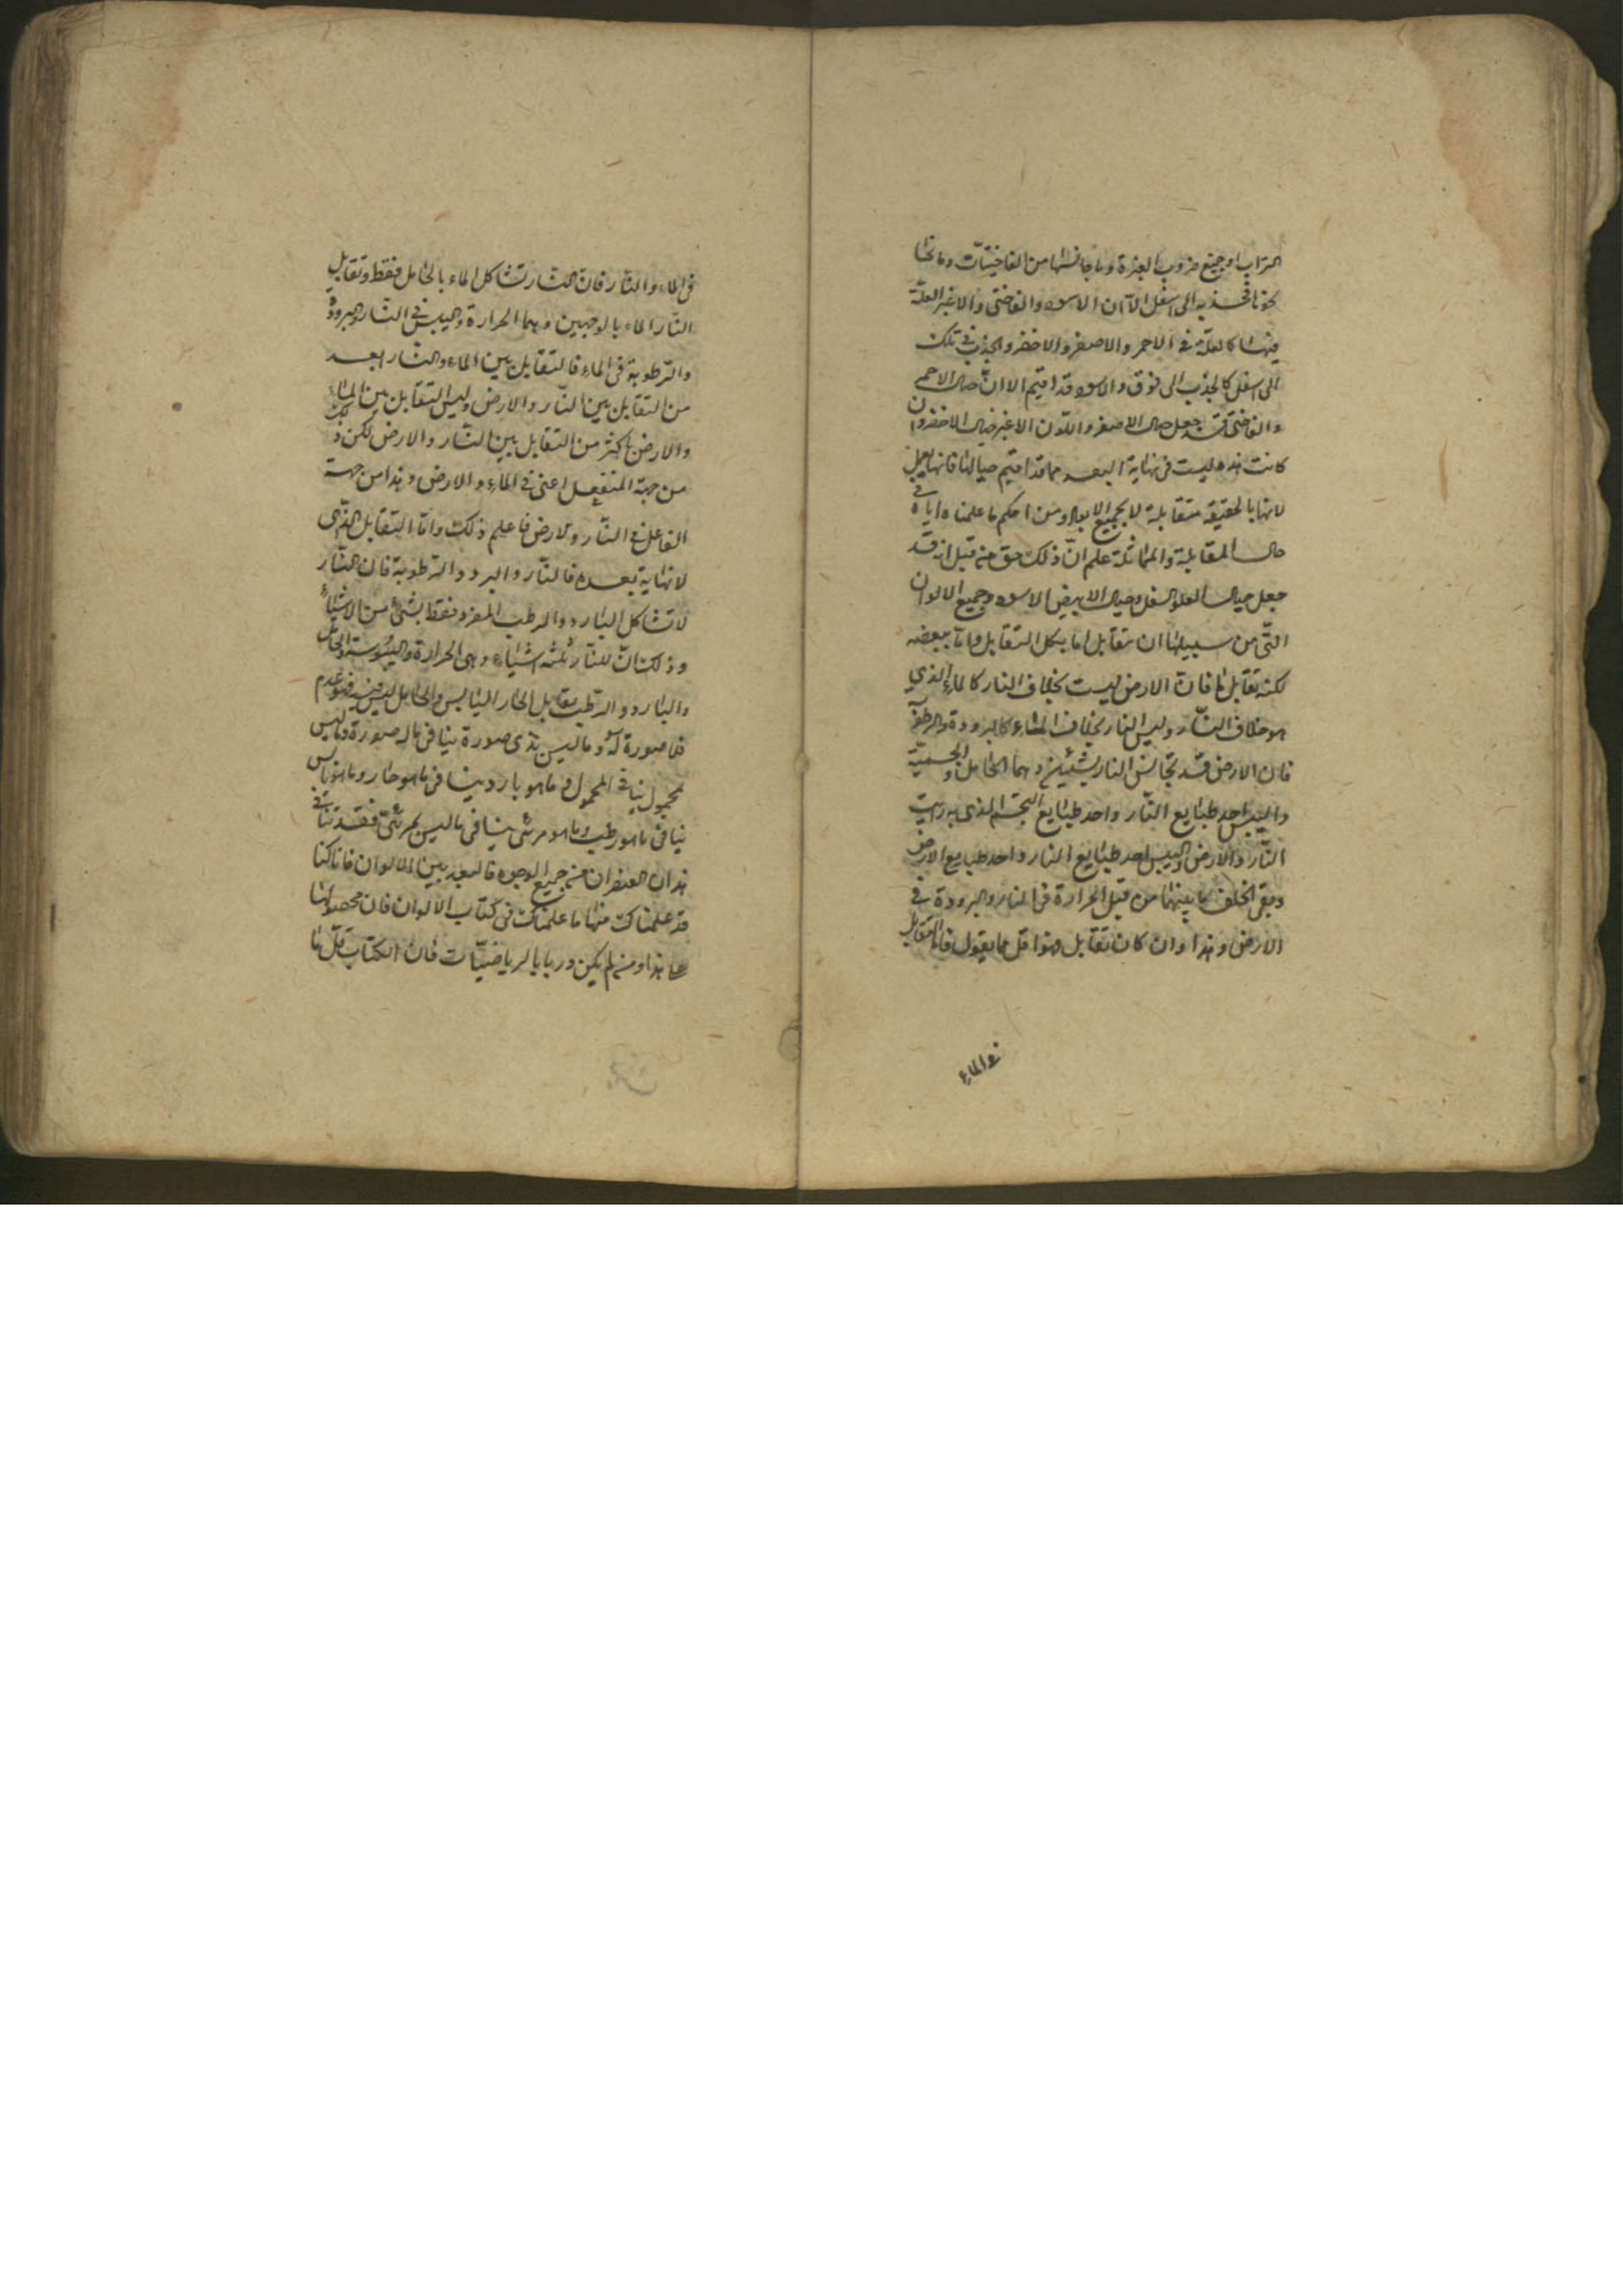 التراب او جميع ضروب الغبرة وما جانسها من الفاختيات وما نحا
نحوها فجذبه الى اسفل الا ان الاسود والفاختى والاغبر العلة
فيها كالعلة فى الاحمر والاصفر والاخضر والجذب فى تلك
الى اسفل كالجذب الى فوق والاسود قد اقيم الا ان حيال الاحمر
والفاختى قد جعل حيال الاصفر واللون الاغبر حيال الاخضر وان
كانت هذه ليست فى نهاية البعد مما قد اقيم حيالها فانها
لانها بالحقيقة متقابلة لا بجميع الابعاد ومن احكم ما علمناه اياه فى
حال المقابلة والمماثلة علم ان ذلك حق من قبل انه قد
جعل حيال العلو السفل وحيال الابيض الاسود وجميع الالوان
التى من سبيلها ان تتقابل اما بكل التقابل واما ببعضه
لكنه تقابل ما فان الارض ليست بخلاف النار كالماء الذي
هو خلاف النار وليس النار بخلاف الماء كالبرودة والرطوبة
فان الارض قد تجانس النار بشيئين وهما الحامل والجسمية
واليبس احد طبايع النار واحد طبايع التجسم الذى به رايت
النار والارض واليبس احد طبايع النار واحد طبايع الارض
وبقى الخلف ما بينهما من قبل الحرارة فى النار والبرودة فى
الارض وهذا وان كان تقابل فهو اقل مما يقول فاما التقابل
فى الماء
فى الماء والنار فان النار تشاكل الماء بالحامل فقط وتقابل
النار الماء بالوجهين وهما الحرارة واليبس فى النار والبرودة
والرطوبة فى الماء فالتقابل بين الماء والنار ابعد
من التقابل بين النار والارض وليس التقابل بين الماء
والارض باكثر من التقابل بين النار والارض لكن ذلك
من جهة المنفعل اعنى فى الماء والارض وهذا من جهة
الفاعل فى النار والارض فاعلم ذلك واما التقابل الذى
لا نهاية بعده فالنار والبرد والرطوبة فان النار
لا تشاكل البارد والرطب المفرد فقط بشئ من الاشياء
وذلك ان للنار ثلثة اشياء وهى الحرارة واليبوسة والحامل
والبارد والرطب يقابل الحار اليابس والحامل ليس فيه فهو عدم
فلا صورة له وما ليس بذى صورة ينافى ما له صورة وما ليس
بمحمول ينافى المحمول وما هو بارد ينافى ما هو حار وما هو يابس
ينافى ما هو رطب وما هو مرئى ينافى ما ليس بمرئى فقد تنافى
هذان العنصران من جميع الوجوه فالبعد بين الالوان فانا كنا
قد علمناك منها ما علمناك فى كتاب الالوان فان محصولها
على هذا ومن لم يكن دربا بالرياضيات فان الكتاب قل ما